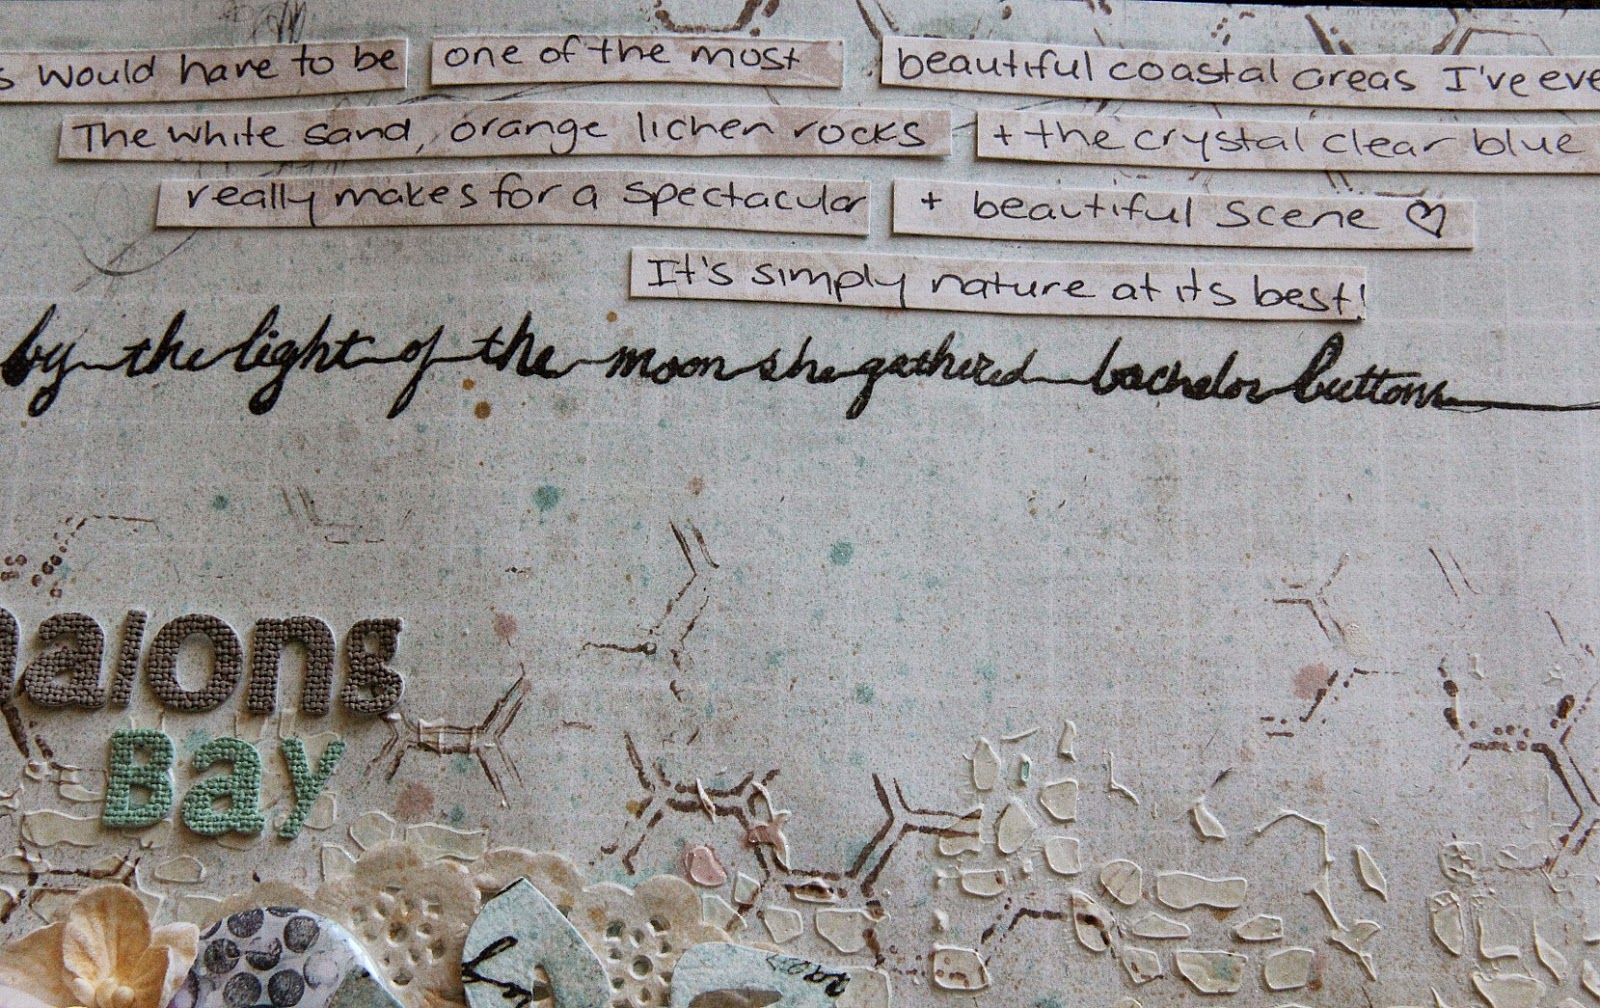 s would have to be one of the most beautiful coastal areas I've eve
The white sand, orange lichen rocks + the crystal clear blue
really makes for a spectacular + beautiful scene ♡
It's simply nature at its best!
by the light of the moon she gathered bachelor buttons
along
Bay